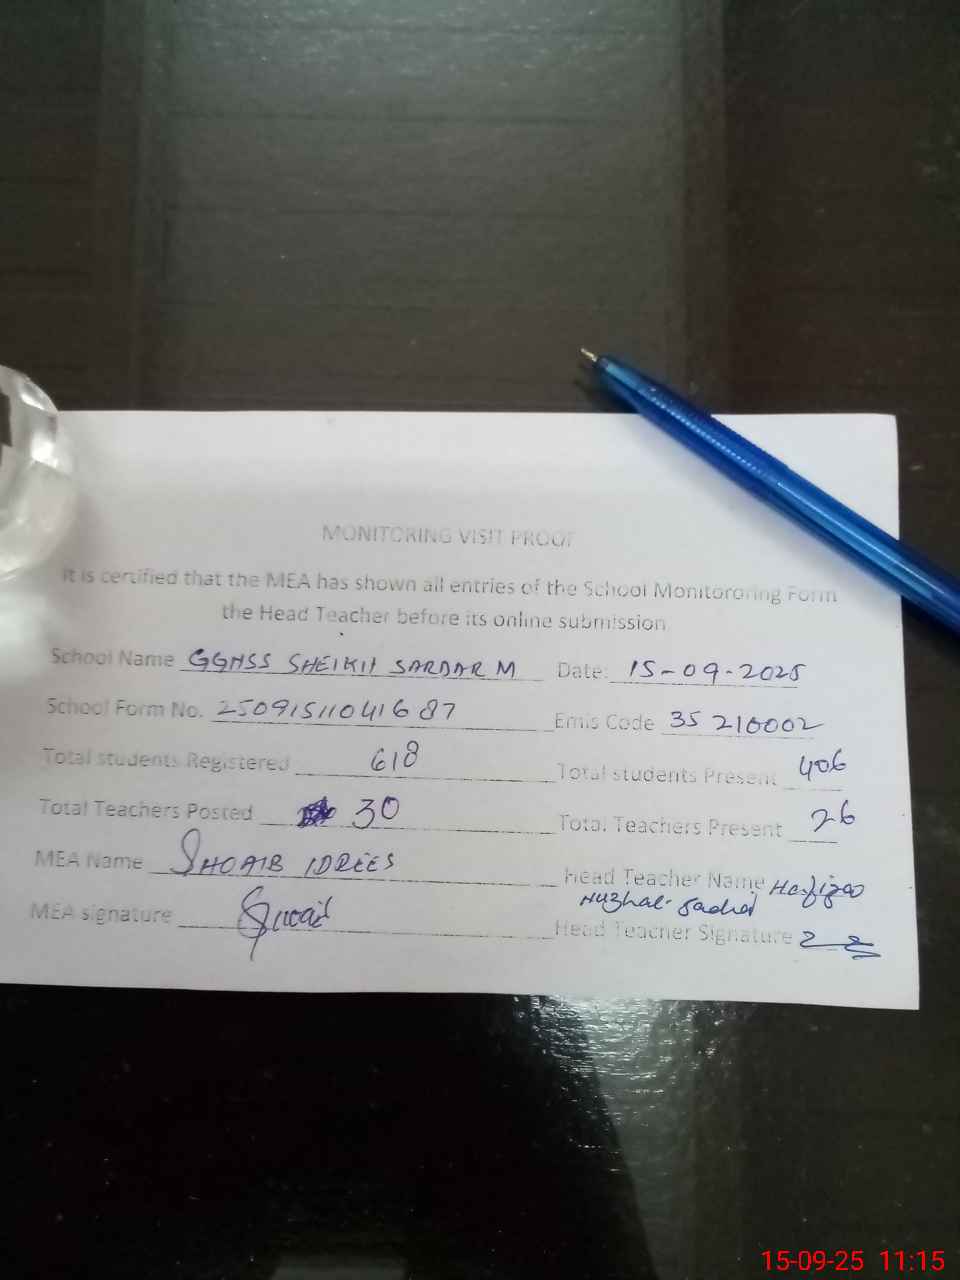 MONITORING VISIT PROOF
It is certified that the MEA has shown all entries of the School Monitororing Form
the Head Teacher before its online submission
School Name GGHSS SHEIKH SARDAR M Date: 15-09-2025
School Form No. 25091511041687 Emis Code 35210002
Total students Registered 618 Total students Present 406
Total Teachers Posted 30 Total Teachers Present 26
MEA Name SHOAIB IDREES Head Teacher Name
MEA signature Head Teacher Signature
15-09-25 11:15